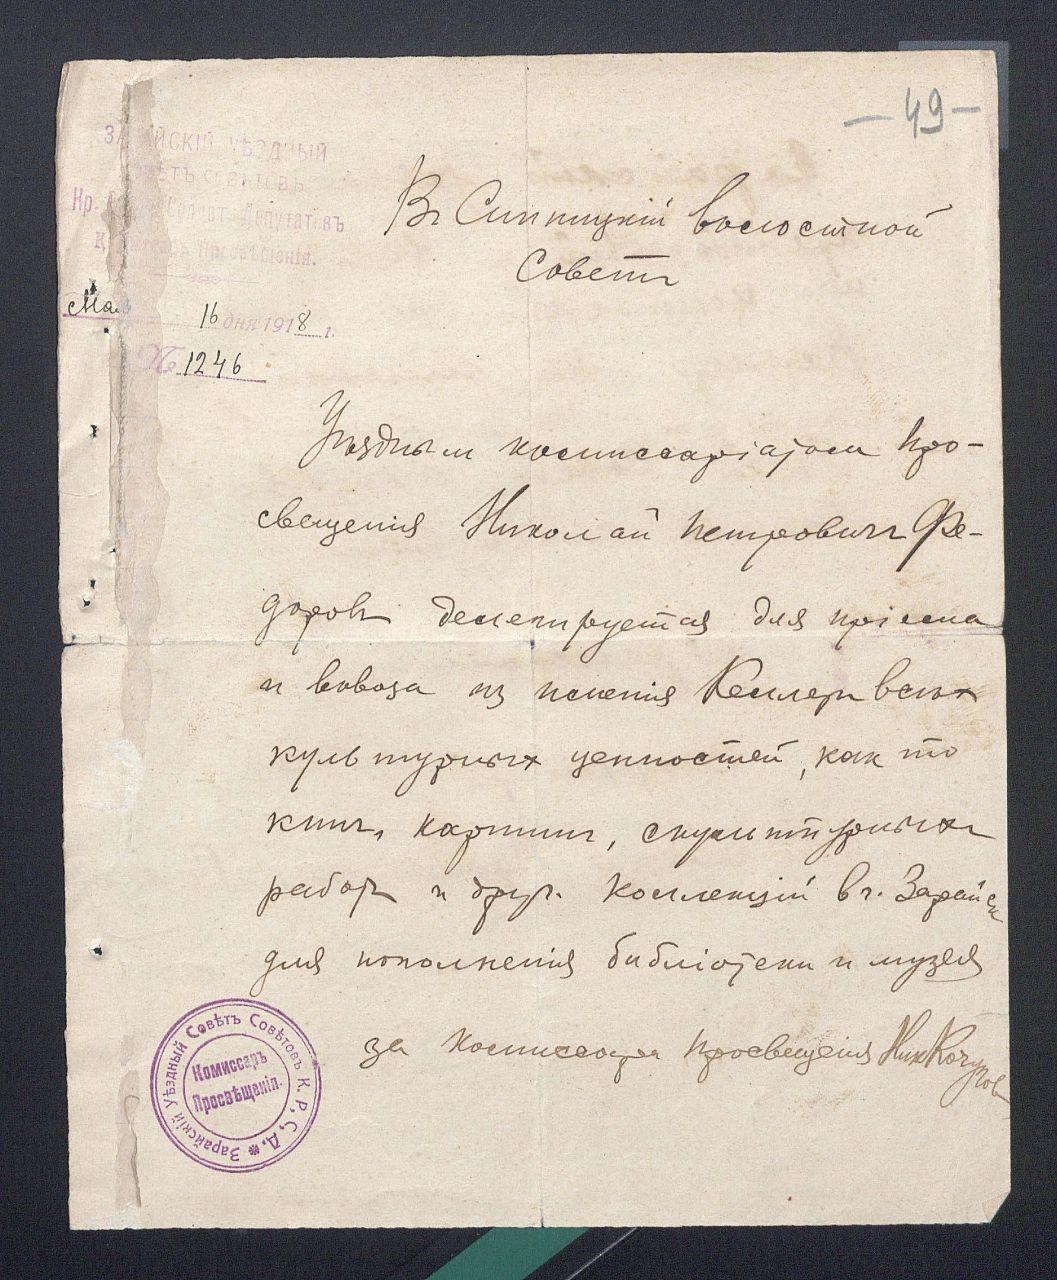 — 49 —
ЗАРАЙСКІЙ УѢЗДНЫЙ
Кр. Солдат. Депутатовъ
Просвѣщенія.
Мая 16 дня 1918 г.
№ 1246
Въ Сенницкій волостной
Советъ
Уѣздным комиссаріатом Про-
свещения Николай Петрович Фе-
доровъ делегируется для пріема
и вывоза из имения Келлеръ всѣх
культурных ценностей, как то
книг, картин, скульптурных
работъ и друг. коллекцій в г. Зарайск
для пополнения библіотеки и музея
за комиссара просвещения Ник Кочуров
Зарайскій Уѣздный Совѣтъ Совѣтовъ К. Р. С. Д.
Комиссаръ
Просвѣщенія.